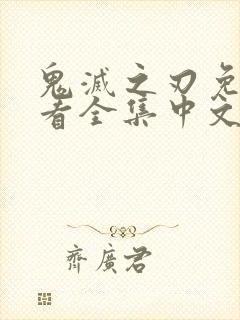 鬼滅之刃免
看全集中文
齊廣君